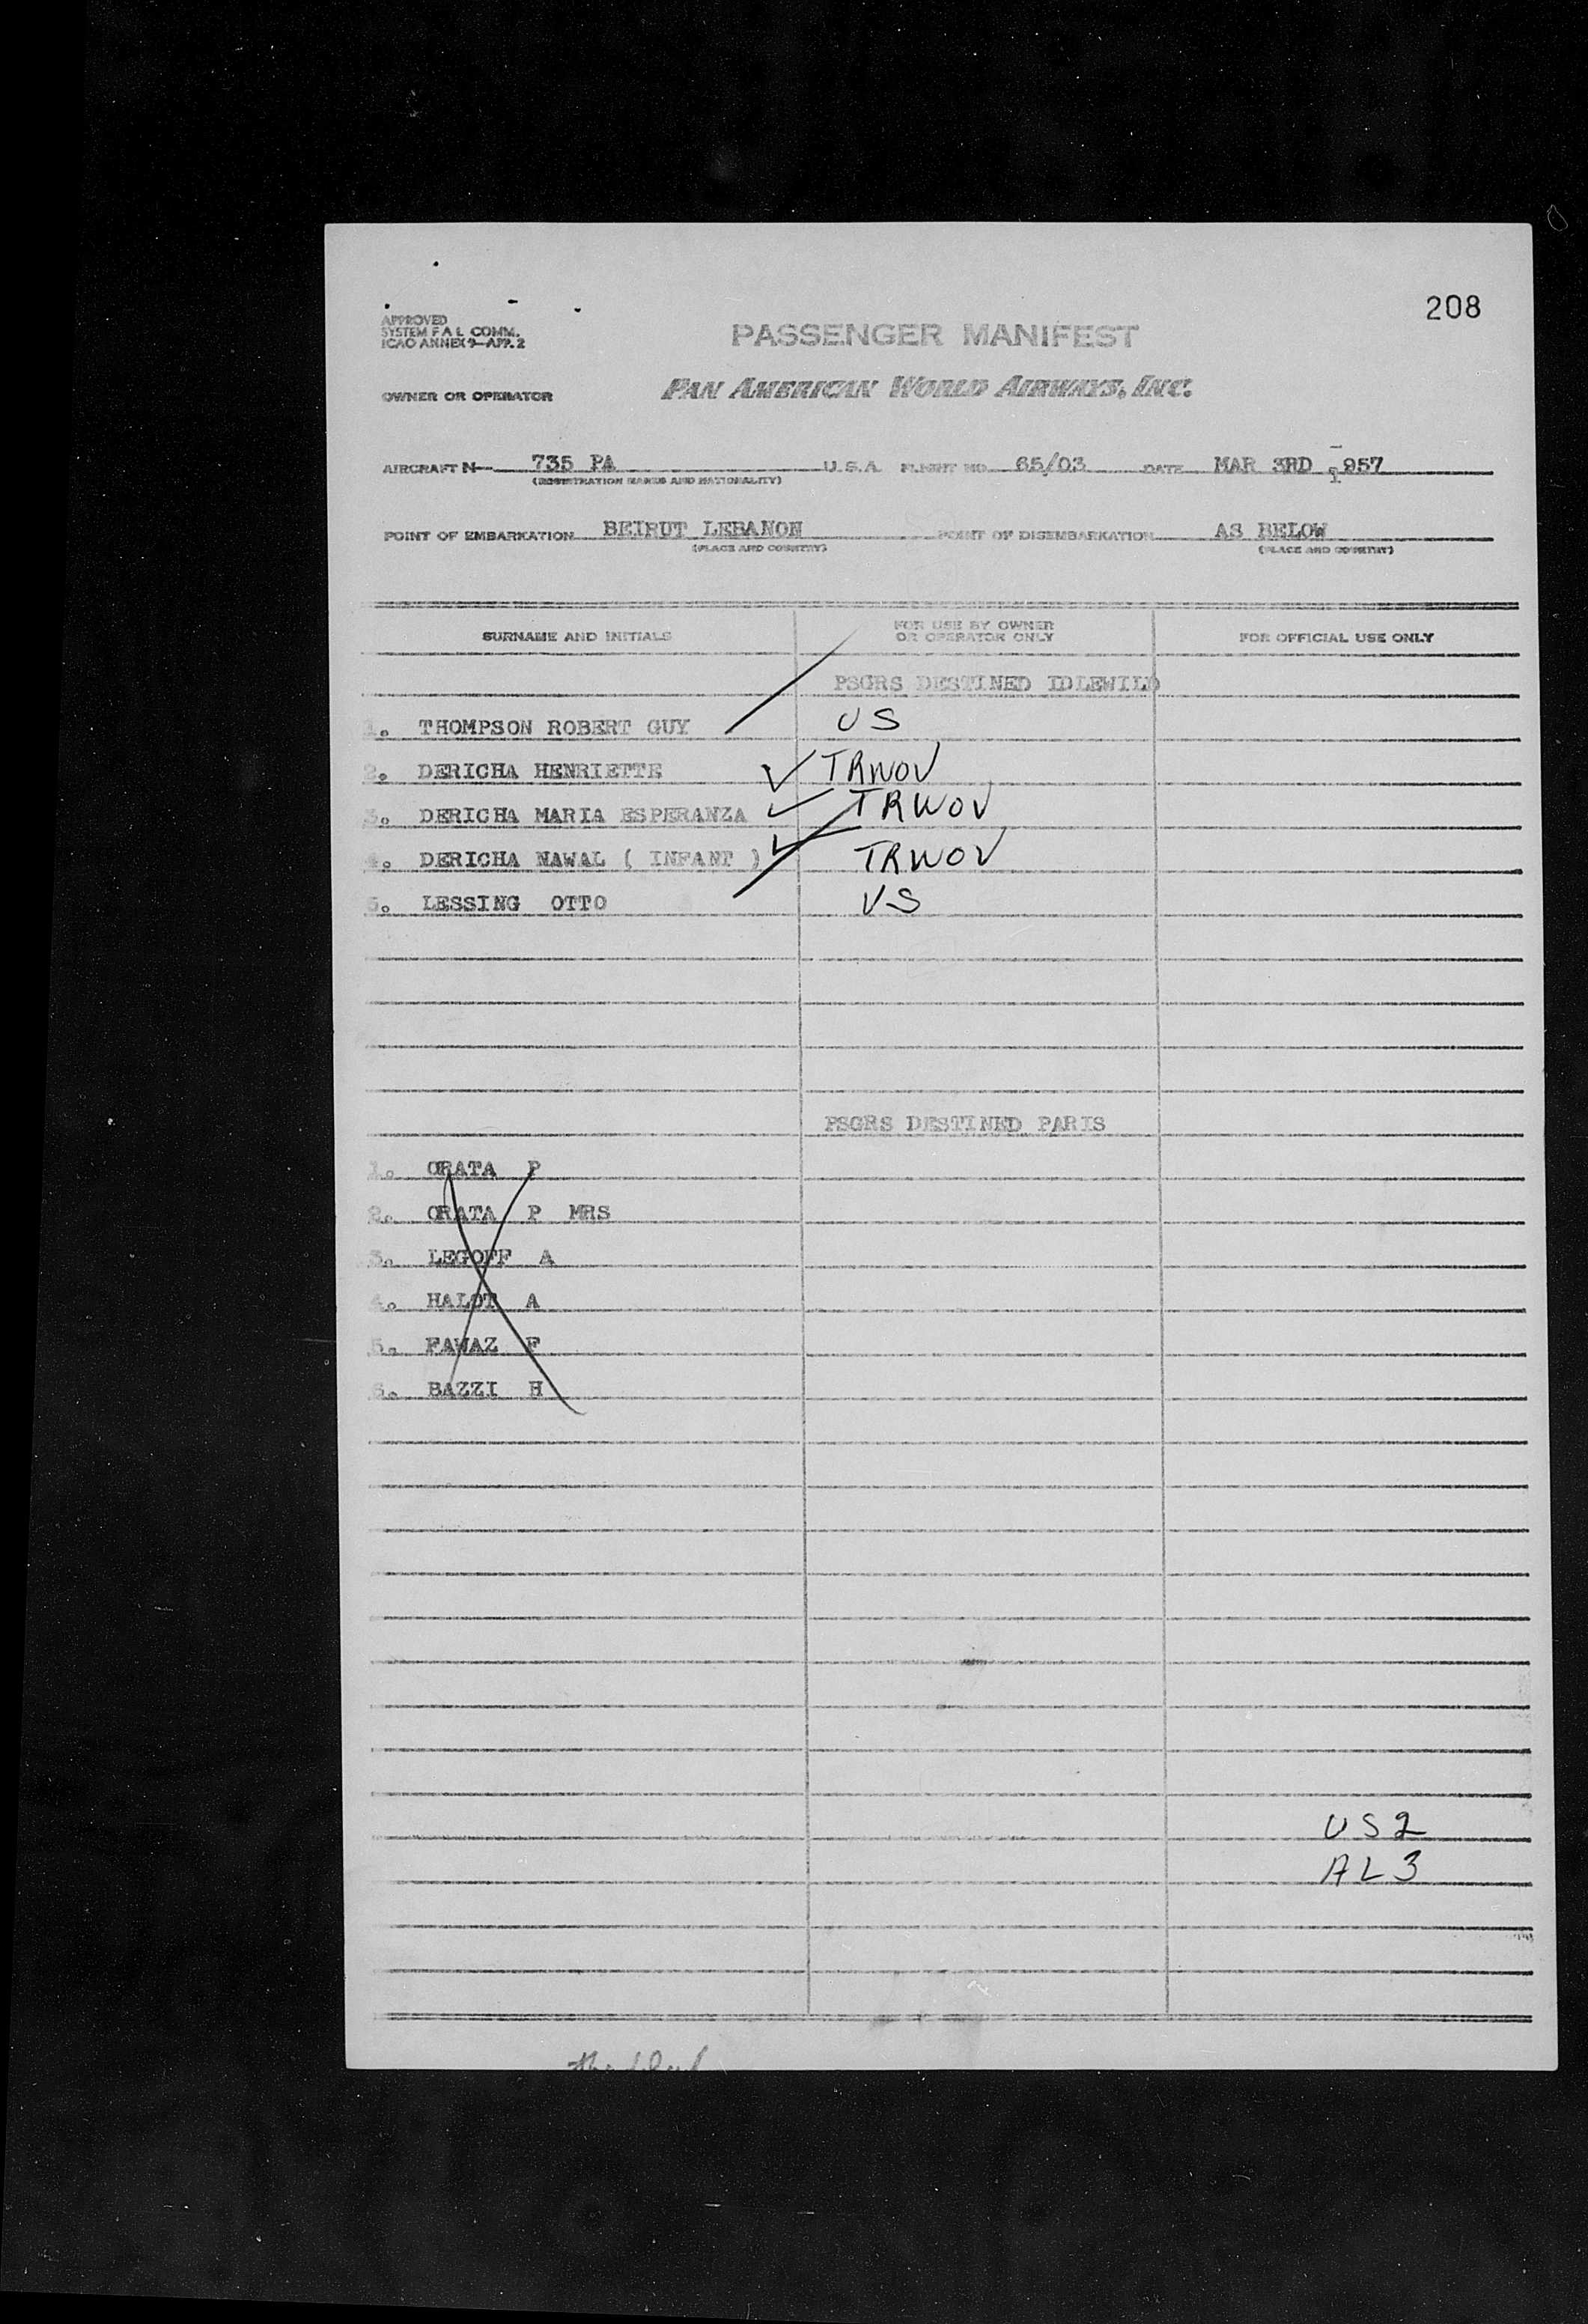 208
APPROVED
SYSTEM F A L COMM.
ICAO ANNEX 9—APP. 2
PASSENGER MANIFEST
OWNER OR OPERATOR PAN AMERICAN WORLD AIRWAYS, INC.
AIRCRAFT N— 735 PA U.S.A. FLIGHT NO. 65/03 DATE MAR 3RD 1957
(REGISTRATION MARKS AND NATIONALITY)
POINT OF EMBARKATION BEIRUT LEBANON POINT OF DISEMBARKATION AS BELOW
(PLACE AND COUNTRY) (PLACE AND COUNTRY)
SURNAME AND INITIALS FOR USE BY OWNER OR OPERATOR ONLY FOR OFFICIAL USE ONLY
PSGRS DESTINED IDLEWILD
1. THOMPSON ROBERT GUY US
2. DERICHA HENRIETTE TRWOV
3. DERICHA MARIA ESPERANZA TRWOV
4. DERICHA NAWAL ( INFANT ) TRWOV
5. LESSING OTTO US
PSGRS DESTINED PARIS
1. ORATA P
2. ORATA P MRS
3. LEGOFF A
4. HALOT A
5. FAWAZ F
6. BAZZI H
US2
AL3